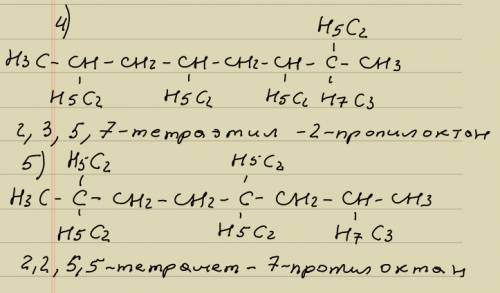 4)
H5C2
H3C - CH - CH2 - CH - CH2 - CH - C - CH3
H5C2 H5C2 H5C2 H7C3
2, 3, 5, 7-тетраэтил -2-пропилоктан
5) H5C2 H5C2
H3C - C - CH2 - CH2 - C - CH2 - CH - CH3
H5C2 H5C2 H7C3
2,2,5,5-тетрамет-7-пропил октан